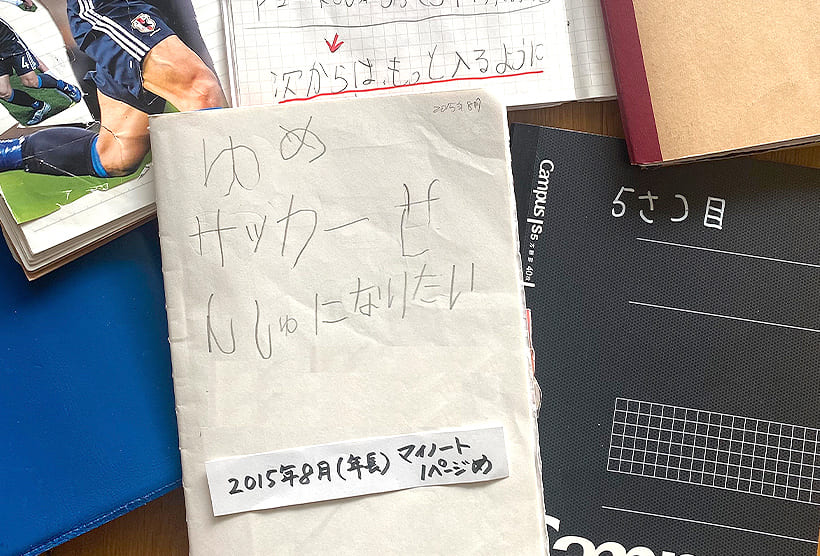 次からは、もっと入るように
2015年8月
ゆめ
サッカーせ
んしゅになりたい
2015年8月(年長) マイノート
1ページめ
Campus S5
40枚
5さつ目
Campus
4